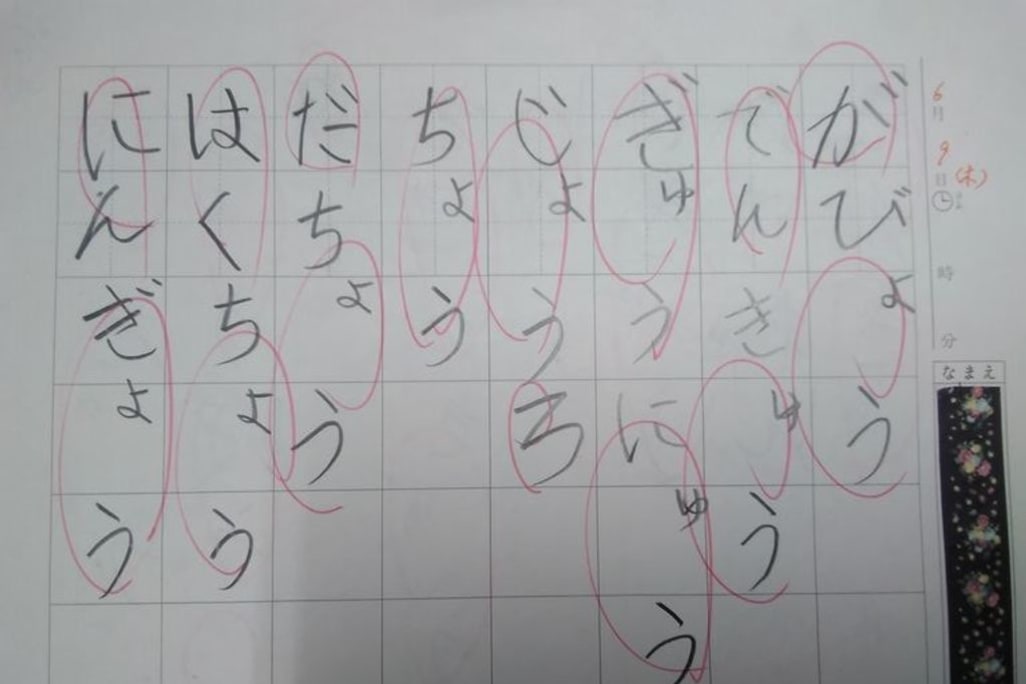 6月9日(木)
時
分
なまえ
がびょう
でんきゅう
ぎゅうにゅう
じょうろ
ちょう
だちょう
はくちょう
にんぎょう